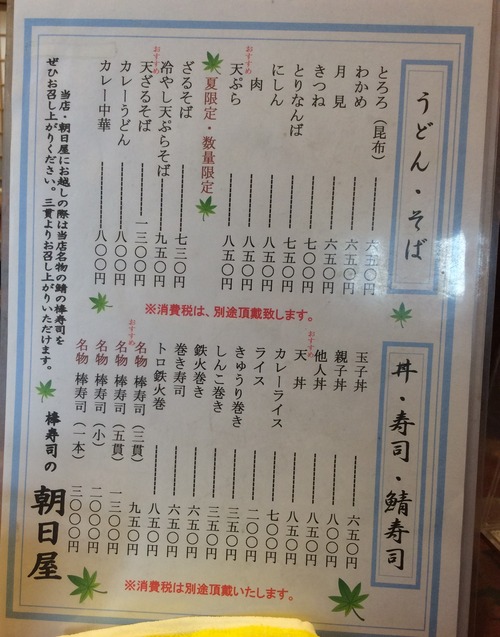 うどん・そば
とろろ（昆布）六五〇円
わかめ 六五〇円
月見 六五〇円
きつね 七〇〇円
とりなんば 七五〇円
にしん 八五〇円
肉 八五〇円
おすすめ
天ぷら 八五〇円
夏限定・数量限定
ざるそば 七三〇円
冷やし天ぷらそば 九五〇円
おすすめ
天ざるそば 一三〇〇円
カレーうどん 八〇〇円
カレー中華 八〇〇円
※消費税は、別途頂戴致します。
丼・寿司・鯖寿司
玉子丼 六五〇円
親子丼 八〇〇円
他人丼 八五〇円
おすすめ
天丼 八五〇円
カレーライス 七〇〇円
ライス 二〇〇円
きゅうり巻き 三五〇円
しんこ巻き 三五〇円
鉄火巻き 六五〇円
巻き寿司 六五〇円
トロ鉄火巻 八五〇円
名物 棒寿司（三貫）九五〇円
おすすめ
名物 棒寿司（五貫）一三〇〇円
名物 棒寿司（小）二〇〇〇円
名物 棒寿司（一本）三〇〇〇円
※消費税は別途頂戴いたします。
当店・朝日屋にお越しの際は当店名物の鯖の棒寿司を
ぜひお召し上がりください。三貫よりお召し上がりいただけます。
棒寿司の 朝日屋